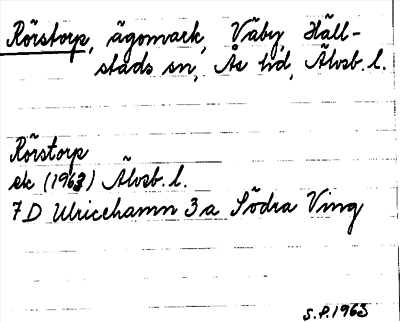 Rörstorp, ägomark, Väby, Häll-
stads sn, Ås hd, Älvsb. l.
Rörstorp
ek (1963) Älvsb. l.
7D Ulricehamn 3a Södra Ving
S.P. 1963